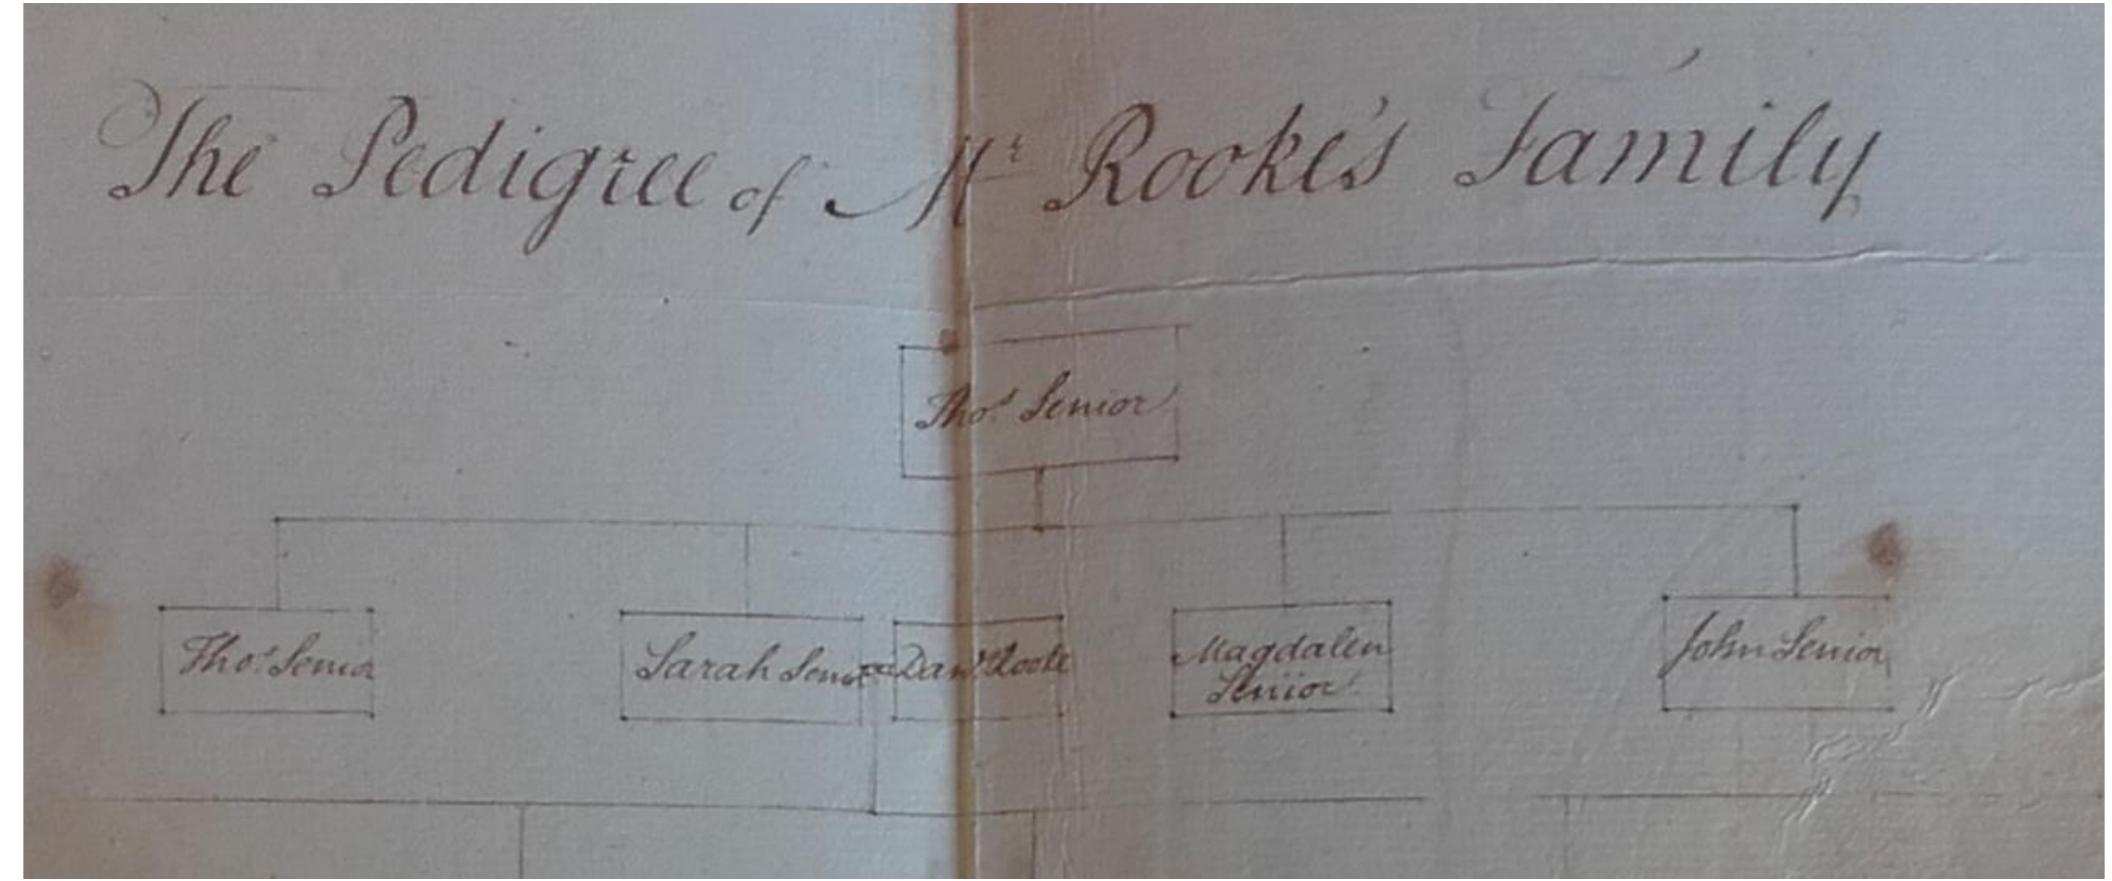 The Pedigree of Mr Rooke's Family
Thos Senior
Thos Senior
Sarah Senior
=
Danl Rooke
Magdalen
Senior
John Senior